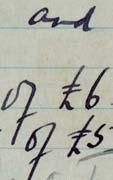 and
of £6
of £5